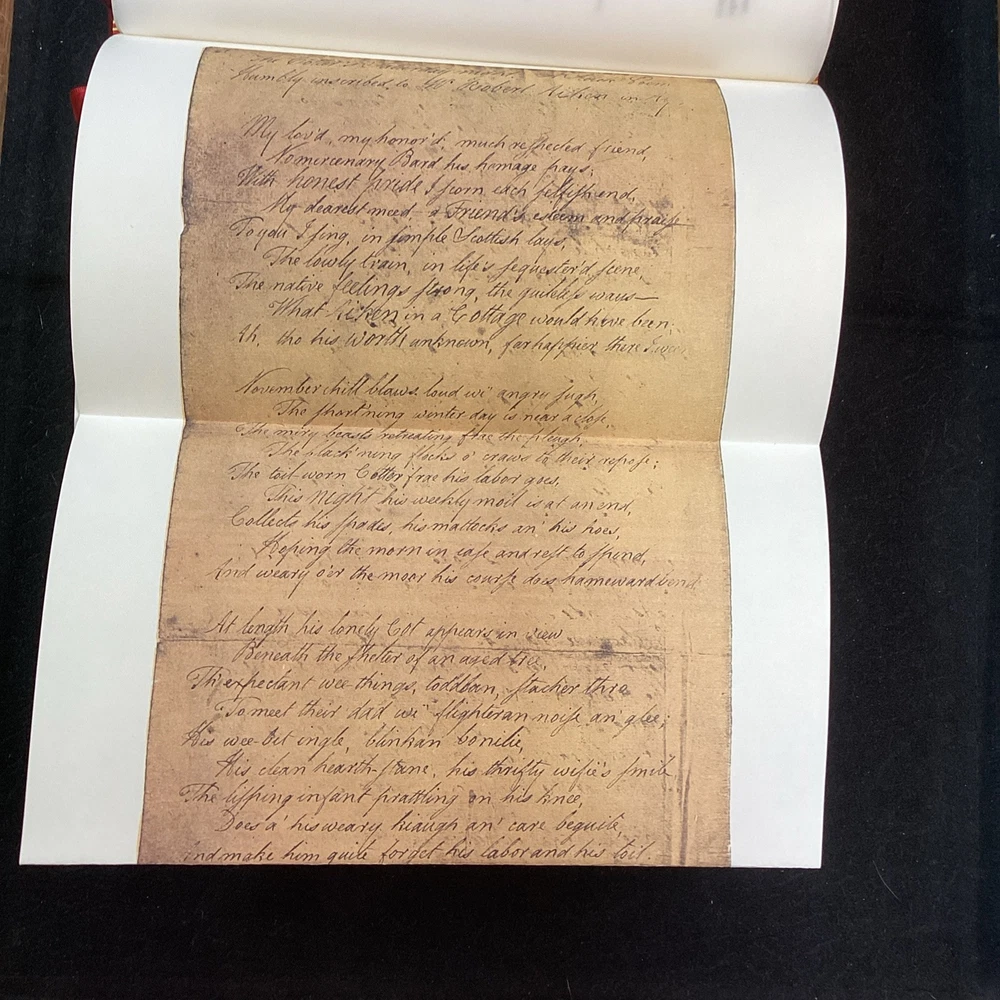 humbly inscribed to Mr Robert Aiken in Ay
My lov'd, my honor'd, much respected friend,
No mercenary Bard his homage pays;
With honest pride I scorn each selfish end,
My dearest meed, a Friend's esteem and praise
To you I sing, in simple Scottish lays,
The lowly train, in life's sequester'd scene,
The native feelings strong, the guileless ways
What Aiken in a Cottage would have been;
Ah, tho his worth unknown, far happier there I ween
November chill blaws loud wi' angry sugh,
The short'ning winter day is near a close,
The miry beasts retreating frae the pleugh,
The black'ning flocks o' craws to their repose;
The toil-worn Cotter frae his labor goes,
This night his weekly moil is at an end,
Collects his spades, his mattocks an' his hoes,
Hoping the morn in ease and rest to spend,
And weary o'er the moor his course does hameward bend
At length his lonely Cot appears in view
Beneath the shelter of an aged tree,
Th' expectant wee-things, toddlan, stacher thro
To meet their dad wi' flighteran noise an' glee;
His wee-bit ingle, blinkan bonilie,
His clean hearth-stane, his thrifty wifie's smile
The lisping infant prattling on his knee,
Does a' his weary kiaugh an' care beguile,
And make him quite forget his labor and his toil.